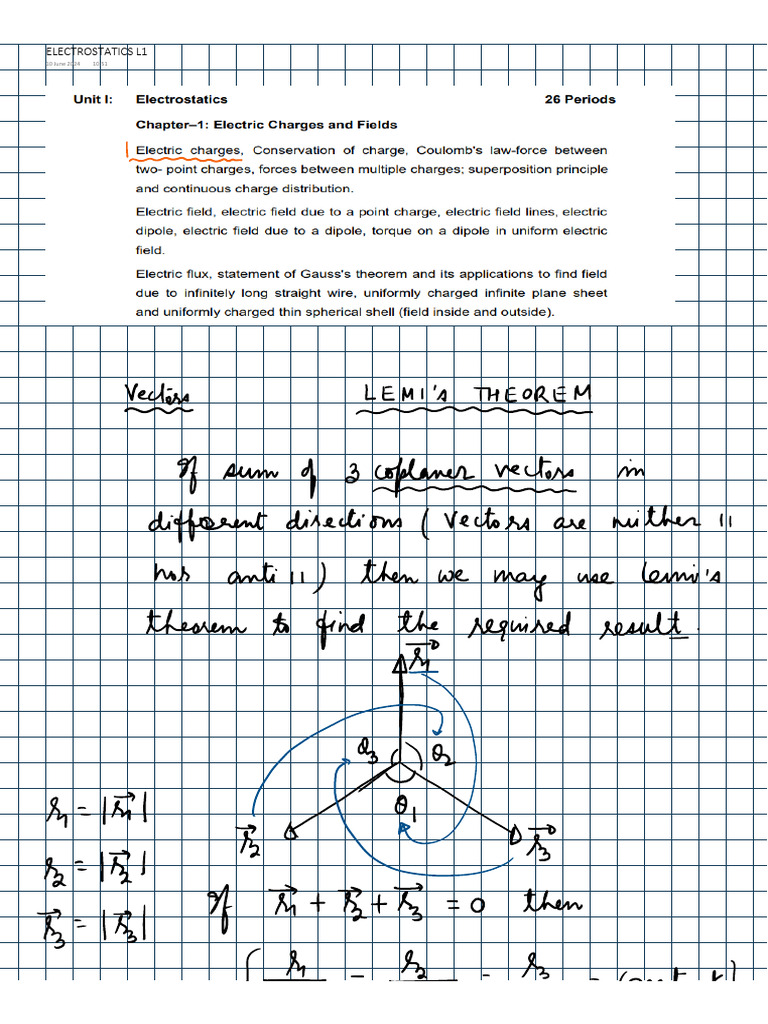 ELECTROSTATICS L1
10 June 2024 10:51
Unit I: Electrostatics 26 Periods
Chapter–1: Electric Charges and Fields
Electric charges, Conservation of charge, Coulomb's law-force between
two- point charges, forces between multiple charges; superposition principle
and continuous charge distribution.
Electric field, electric field due to a point charge, electric field lines, electric
dipole, electric field due to a dipole, torque on a dipole in uniform electric
field.
Electric flux, statement of Gauss's theorem and its applications to find field
due to infinitely long straight wire, uniformly charged infinite plane sheet
and uniformly charged thin spherical shell (field inside and outside).
Vectors LEMI's THEOREM
If sum of 3 coplaner vectors in
different directions (vectors are neither ||
nor anti ||) then we may use Lemi's
theorem to find the required result.
r⃗1
θ3 θ2
θ1
r1 = |r⃗1|
r⃗2 r⃗3
r2 = |r⃗2|
If r⃗1 + r⃗2 + r⃗3 = 0 then
r⃗3 = |r⃗3|
r1 = r2 = r3 =